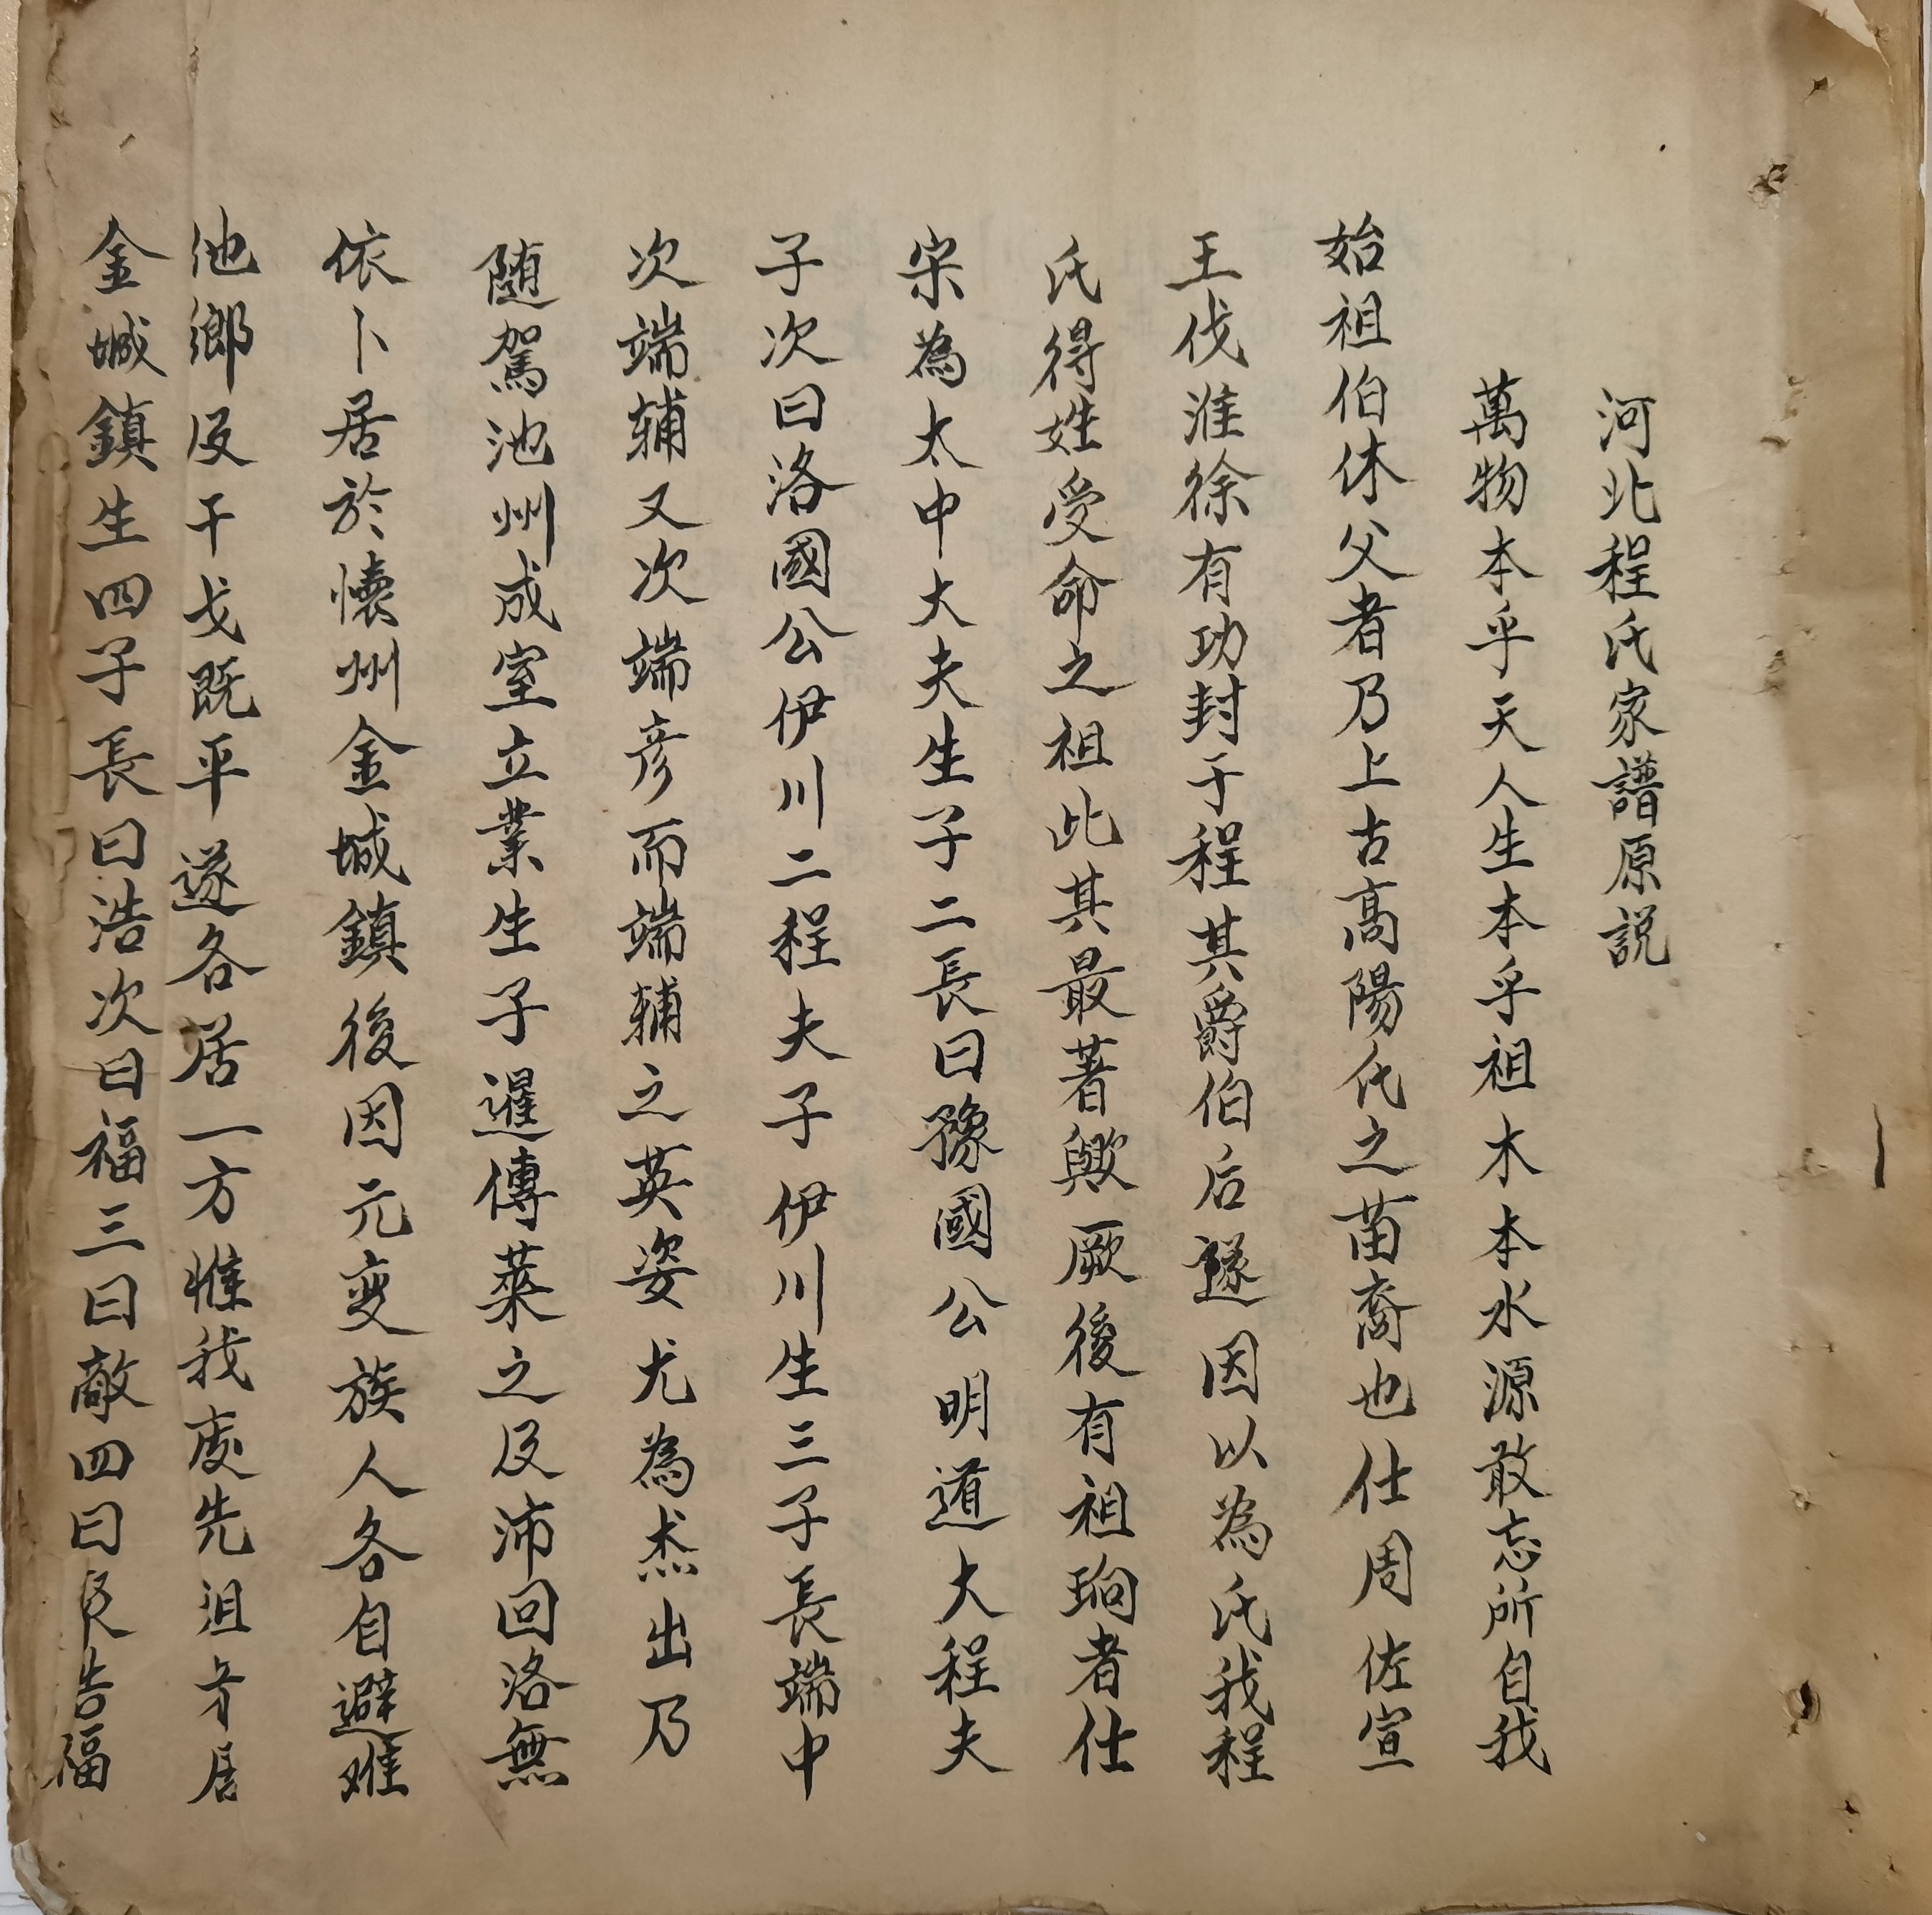 河北程氏家譜原説
萬物本乎天人生本乎祖木本水源敢忘所自我
始祖伯休父者乃上古高陽氏之苗裔也仕周佐宣
王伐淮徐有功封于程其爵伯后遂因以為氏我程
氏得姓受命之祖此其最著歟厥後有祖珦者仕
宋為太中大夫生子二長曰豫國公明道大程夫
子次曰洛國公伊川二程夫子伊川生三子長端中
次端辅又次端彦而端端辅之英姿尤為杰出乃
随駕池州成室立業生子暹傳蕖之及沛回洛無
依卜居於懐州金城鎮後因元变族人各自避难
池鄉及干戈既平遂各居一方惟我䖍先沮弁居
金城鎮生四子長曰浩次曰福三曰敵四曰良浩福